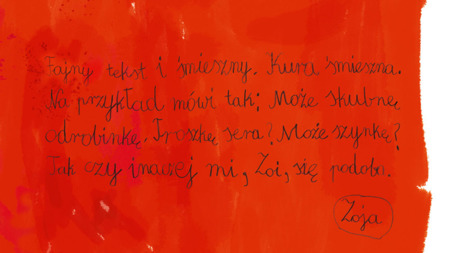 Fajny tekst i śmieszny. Kura śmieszna.
Na przykład mówi tak: Może skubnę
odrobinkę. Troszkę sera? Może szynkę?
Tak czy inaczej mi, Zoi, się podoba.
Zoja